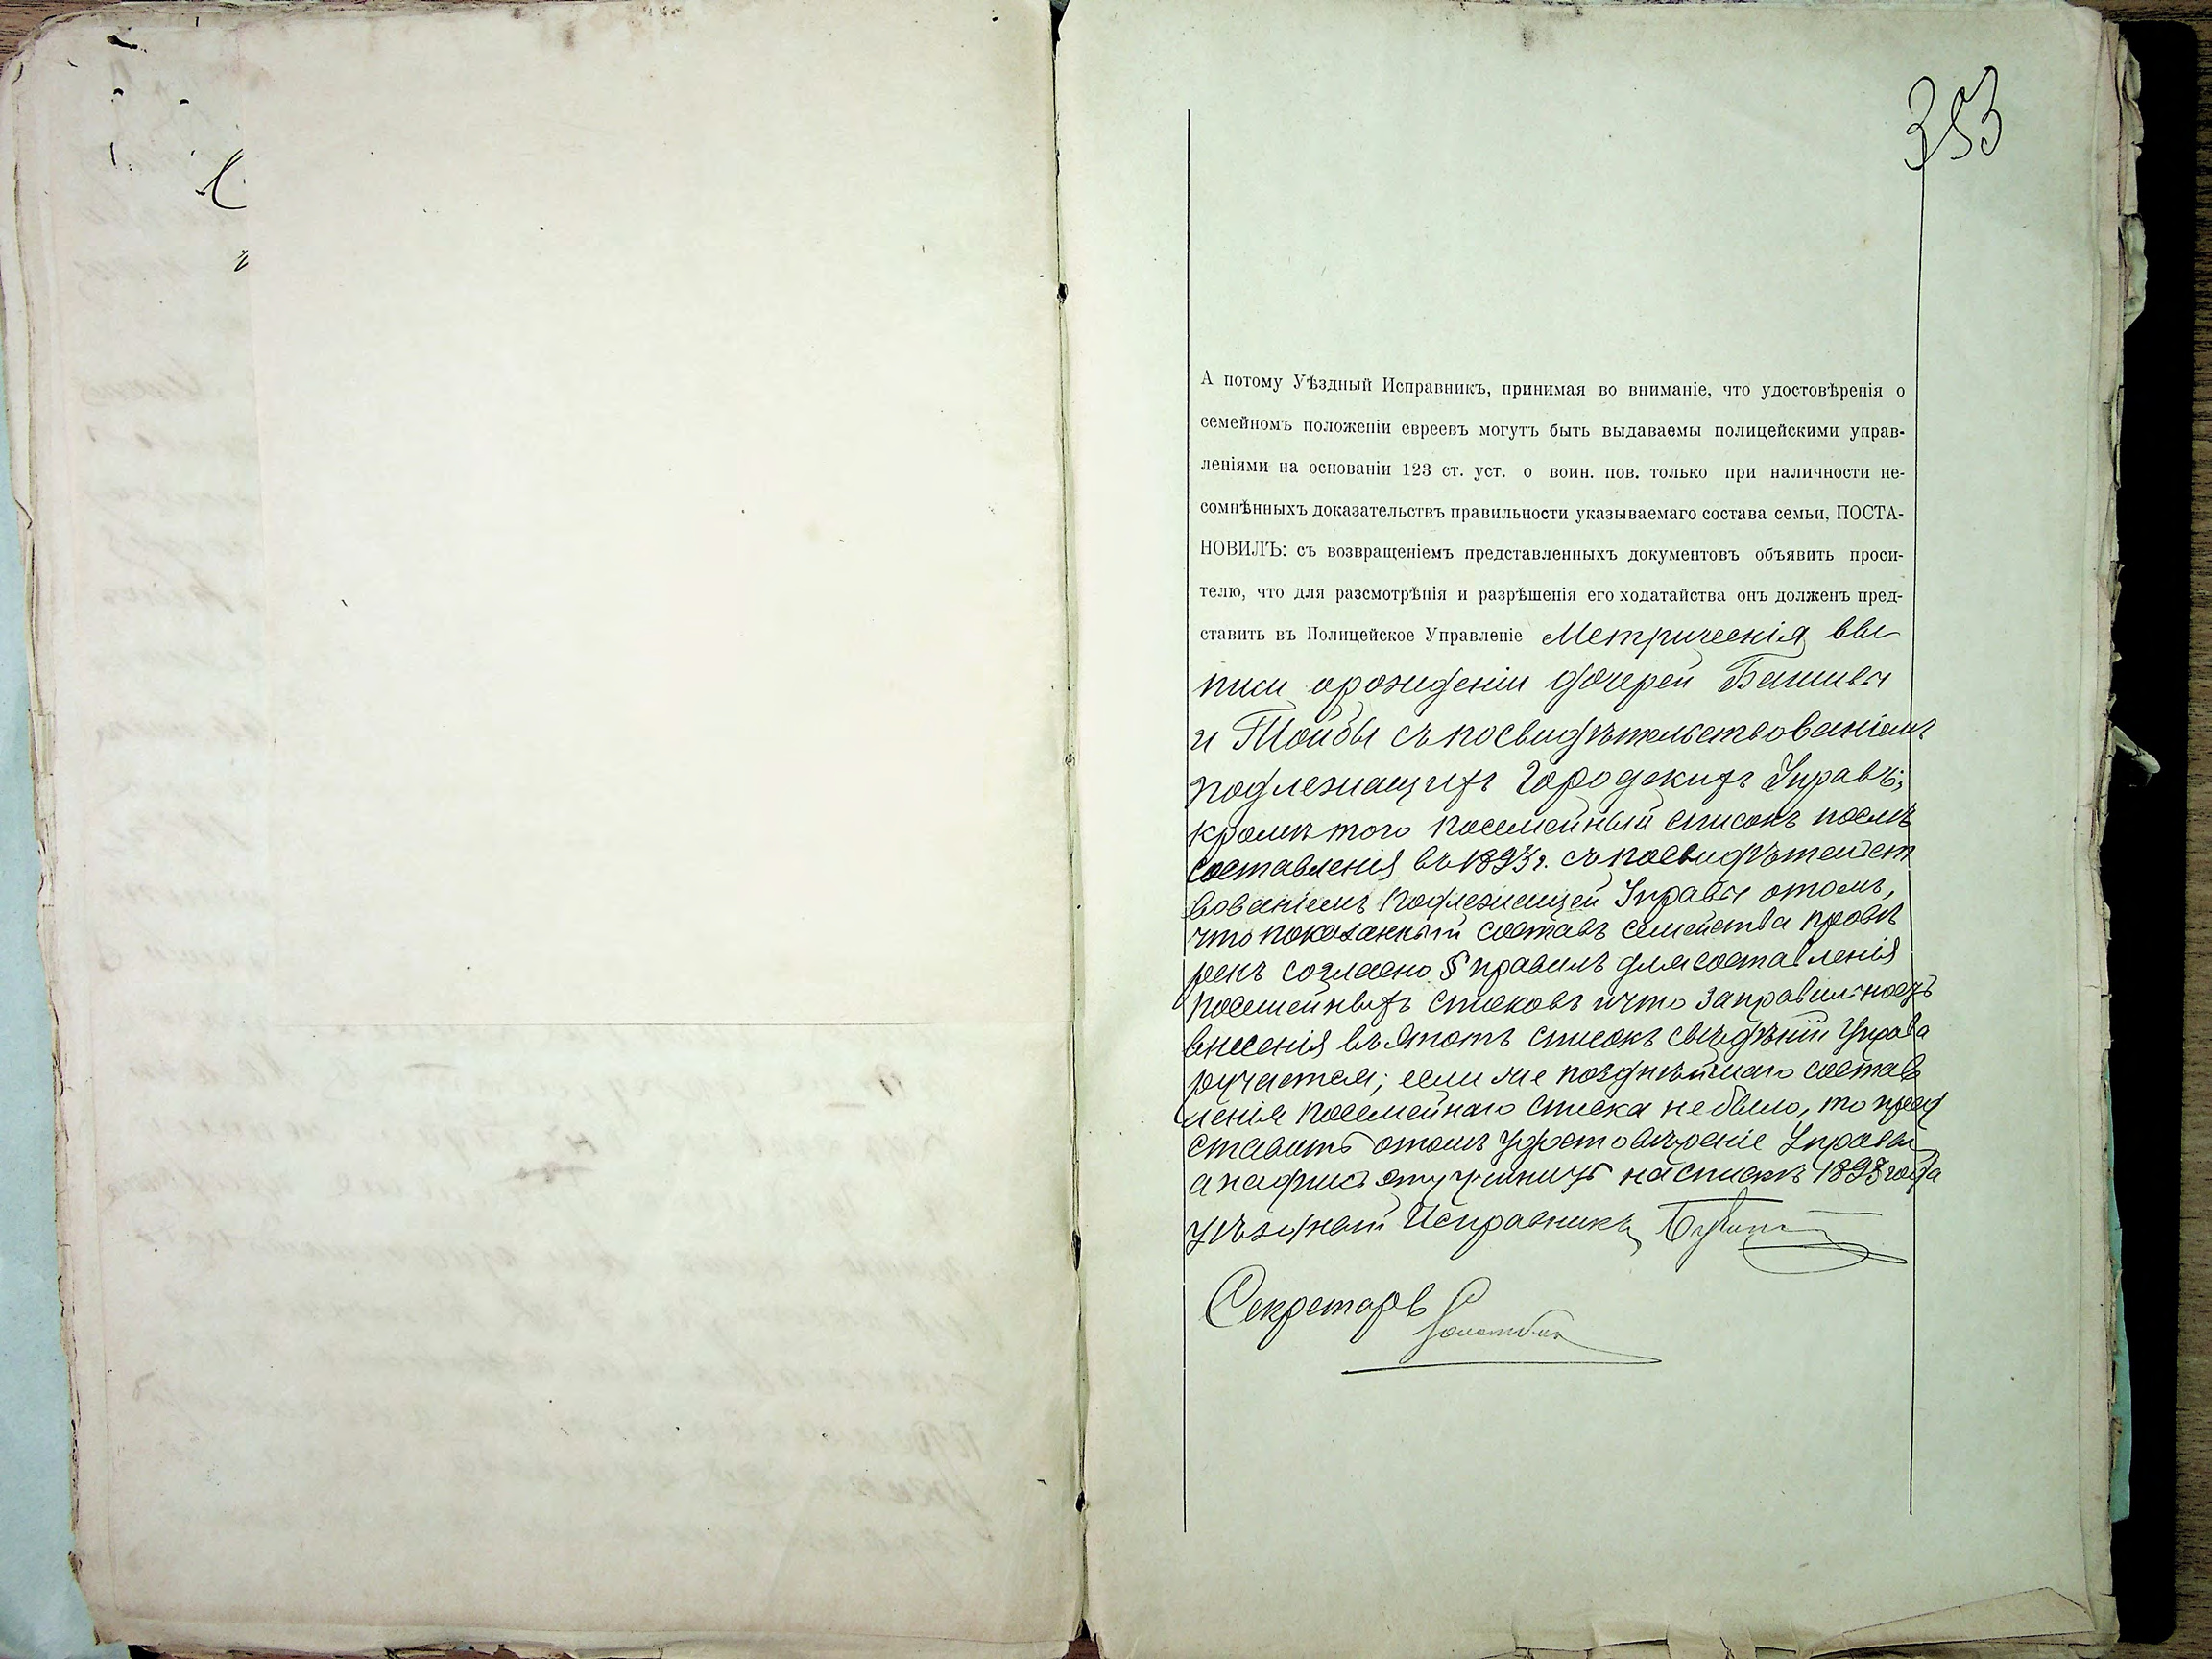 353
А потому Уѣздный Исправникъ, принимая во вниманіе, что удостовѣренія о
семейномъ положеніи евреевъ могутъ быть выдаваемы полицейскими управ-
леніями на основаніи 123 ст. уст. о воин. пов. только при наличности не-
сомнѣнныхъ доказательствъ правильности указываемаго состава семьи, ПОСТА-
НОВИЛЪ: съ возвращеніемъ представленныхъ документовъ объявить проси-
телю, что для разсмотрѣнія и разрѣшенія его ходатайства онъ долженъ пред-
ставить въ Полицейское Управленіе Метрическія вы
писи о рожденіи дочерей
и Тойбы съ посвидѣтельствованіемъ
подлежащихъ Городскихъ Управъ;
кромѣ того посемейный списокъ послѣ
составленія въ 1893 г. съ посвидѣтельст
вованіемъ подлежащей Управы о томъ,
что показанный составъ семейства провѣ
ренъ согласно § правилъ для составленія
посемейныхъ списковъ и что за правильность
внесенія въ этотъ списокъ свѣдѣній Управа
ручается; если же позднѣйшаго состав
ленія посемейнаго списка не было, то пред
ставить о томъ удостовѣреніе Управы
а надпись эту учинить на спискѣ года
Уѣздный Исправникъ
Секретарь